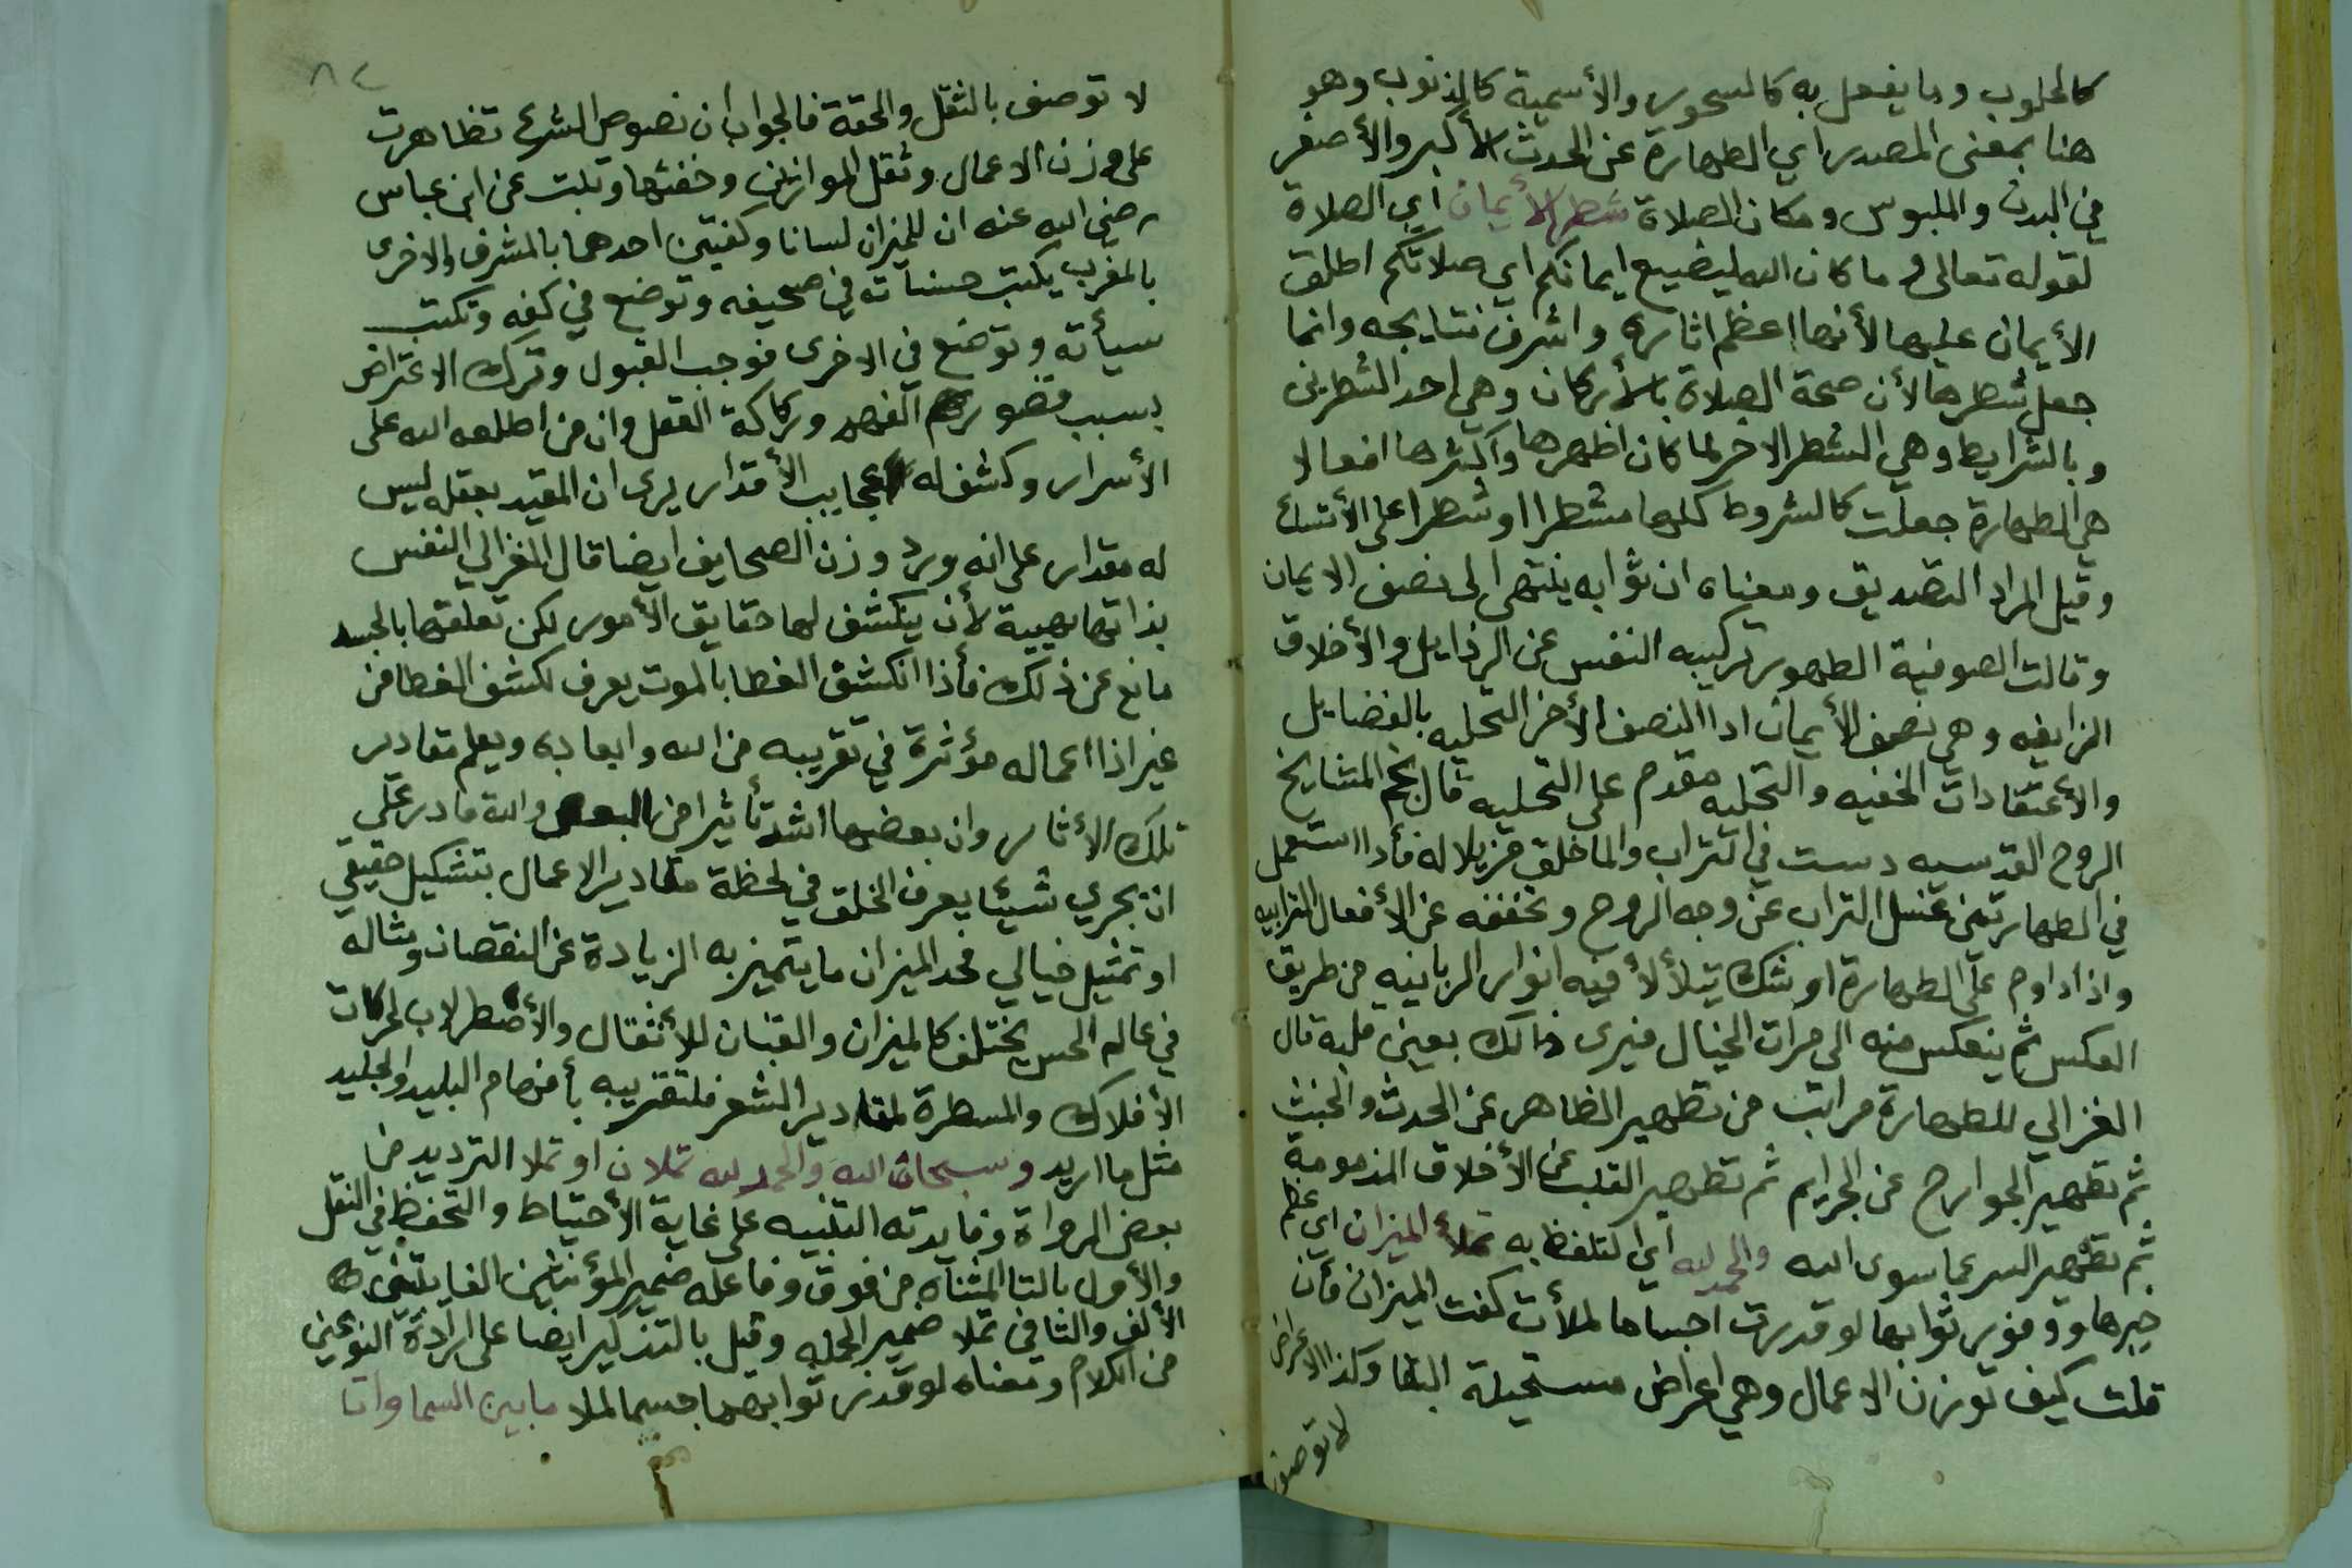 كالحلوب وما يفعل به كالسحور والأسمية كالذنوب وهو
هنا بمعنى المصدر اي الطهارة عن الحدث الأكبر والأصغر
في البدن والملبوس ومكان الصلاة شطر الأيمان اي الصلاة
لقوله تعالى وما كان الله ليضيع ايمانكم اي صلاتكم اطلق
الأيمان عليها لأنها اعظم اثاره واشرف نتايجه وانما
جعل شطرها لأن صحة الصلاة بالأركان وهي احد الشطرين
وبالشرايط وهي الشطر الاخر لما كان اظهرها وأكثرها افعالا
هي الطهارة جعلت كالشروط كلها مشطرا اوشطرا على
وقيل المراد التصديق ومعناه ان ثوابه ينتهي الى نصف الايمان
وقالت الصوفية الطهور تزكيه النفس عن الرذايل والأخلاق
الزايفه وهي نصف الأيمان اذا النصف الأخر التحليه بالفضايل
والأعتقادات الخفيه والتحليه مقدم على التحليه قال نجم المشايخ
الروح القدسيه دست في التراب والما خلق مزيلا له فأذا استعمل
في الطهارتين غسل التراب عن وجه الروح وتخففه عن الأفعال الترابيه
واذا داوم على الطهارة اوشك يتلألأ فيه انوار الربانيه من طريق
العكس ثم ينعكس منه الى مرات الخيال فيرى ذالك بعين قلبه قال
الغزالي للطهارة مراتب من تطهير الظاهر عن الحدث والخبث
ثم تطهير الجوارح عن الجرايم ثم تطهير القلب عن الأخلاق المذمومة
ثم تطهير السر عما سوى الله والحمد لله اي التلفظ به تملأ الميزان اي عظم
خيرها ووفور ثوابها لو قدرت اجساما لملأت كفت الميزان فأن
قلت كيف توزن الاعمال وهي اعراض مستحيلة البقا وكذا الاعراض
لا توصف
٨٤
لا توصف بالثقل والخفة فالجواب ان نصوص الشرع تظاهرت
على وزن الاعمال وثقل الموازين وخفتها وثبت عن ابن عباس
رضي الله عنه ان للميزان لسانا وكفتين احدهما بالمشرق والاخرى
بالمغرب يكتب حسناته في صحيفه وتوضع في كفه وتكتب
سيأته وتوضع في الاخرى فوجب القبول وترك الاعتراض
بسبب قصور الفهم وركاكة العقل وان من اطلعه الله على
الأسرار وكشف له عجايب الأقدار يرى ان المقيد بعقله ليس
له مقدار على انه ورد وزن الصحايف ايضا قال الغزالي النفس
بذاتها مهيية لأن ينكشف لها حقايق الأمور لكن تعلقها بالجسد
مانع عن ذلك فأذا انكشف الغطا بالموت يعرف لكشف الغطا من
غير اذا اعماله مؤثرة في تقريبه من الله وابعاده ويعلم مقادير
تلك الأثار وان بعضها اشد تأثيرا من البعض والله قادر على
ان يجري شيئا يعرف الخلق في لحظة مقادير الاعمال بتشكيل حقيقي
او تمثيل خيالي فحد الميزان ما يتميز به الزيادة عن النقصان ومثاله
في عالم الحس يختلف كالميزان والقبان للأثقال والأصطرلاب لحركات
الأفلاك والمسطرة لمقادير الشعر فلتقريبه بأفهام البليد والجليد
مثل ما اريد وسبحان الله والحمد لله تملان او تملا الترديد من
بعض الرواة وفايدته التنبيه على غاية الأحتياط والتحفظ في النقل
والأول بالتا المثناه من فوق وفاعله ضمير المؤنثين الغايبتين
الألف والثاني تملا ضمير الجمله وقيل بالتذكير ايضا على ارادة النوعين
من الكلام ومعناه لو قدر ثوابهما جسما لملا ما بين السماوات